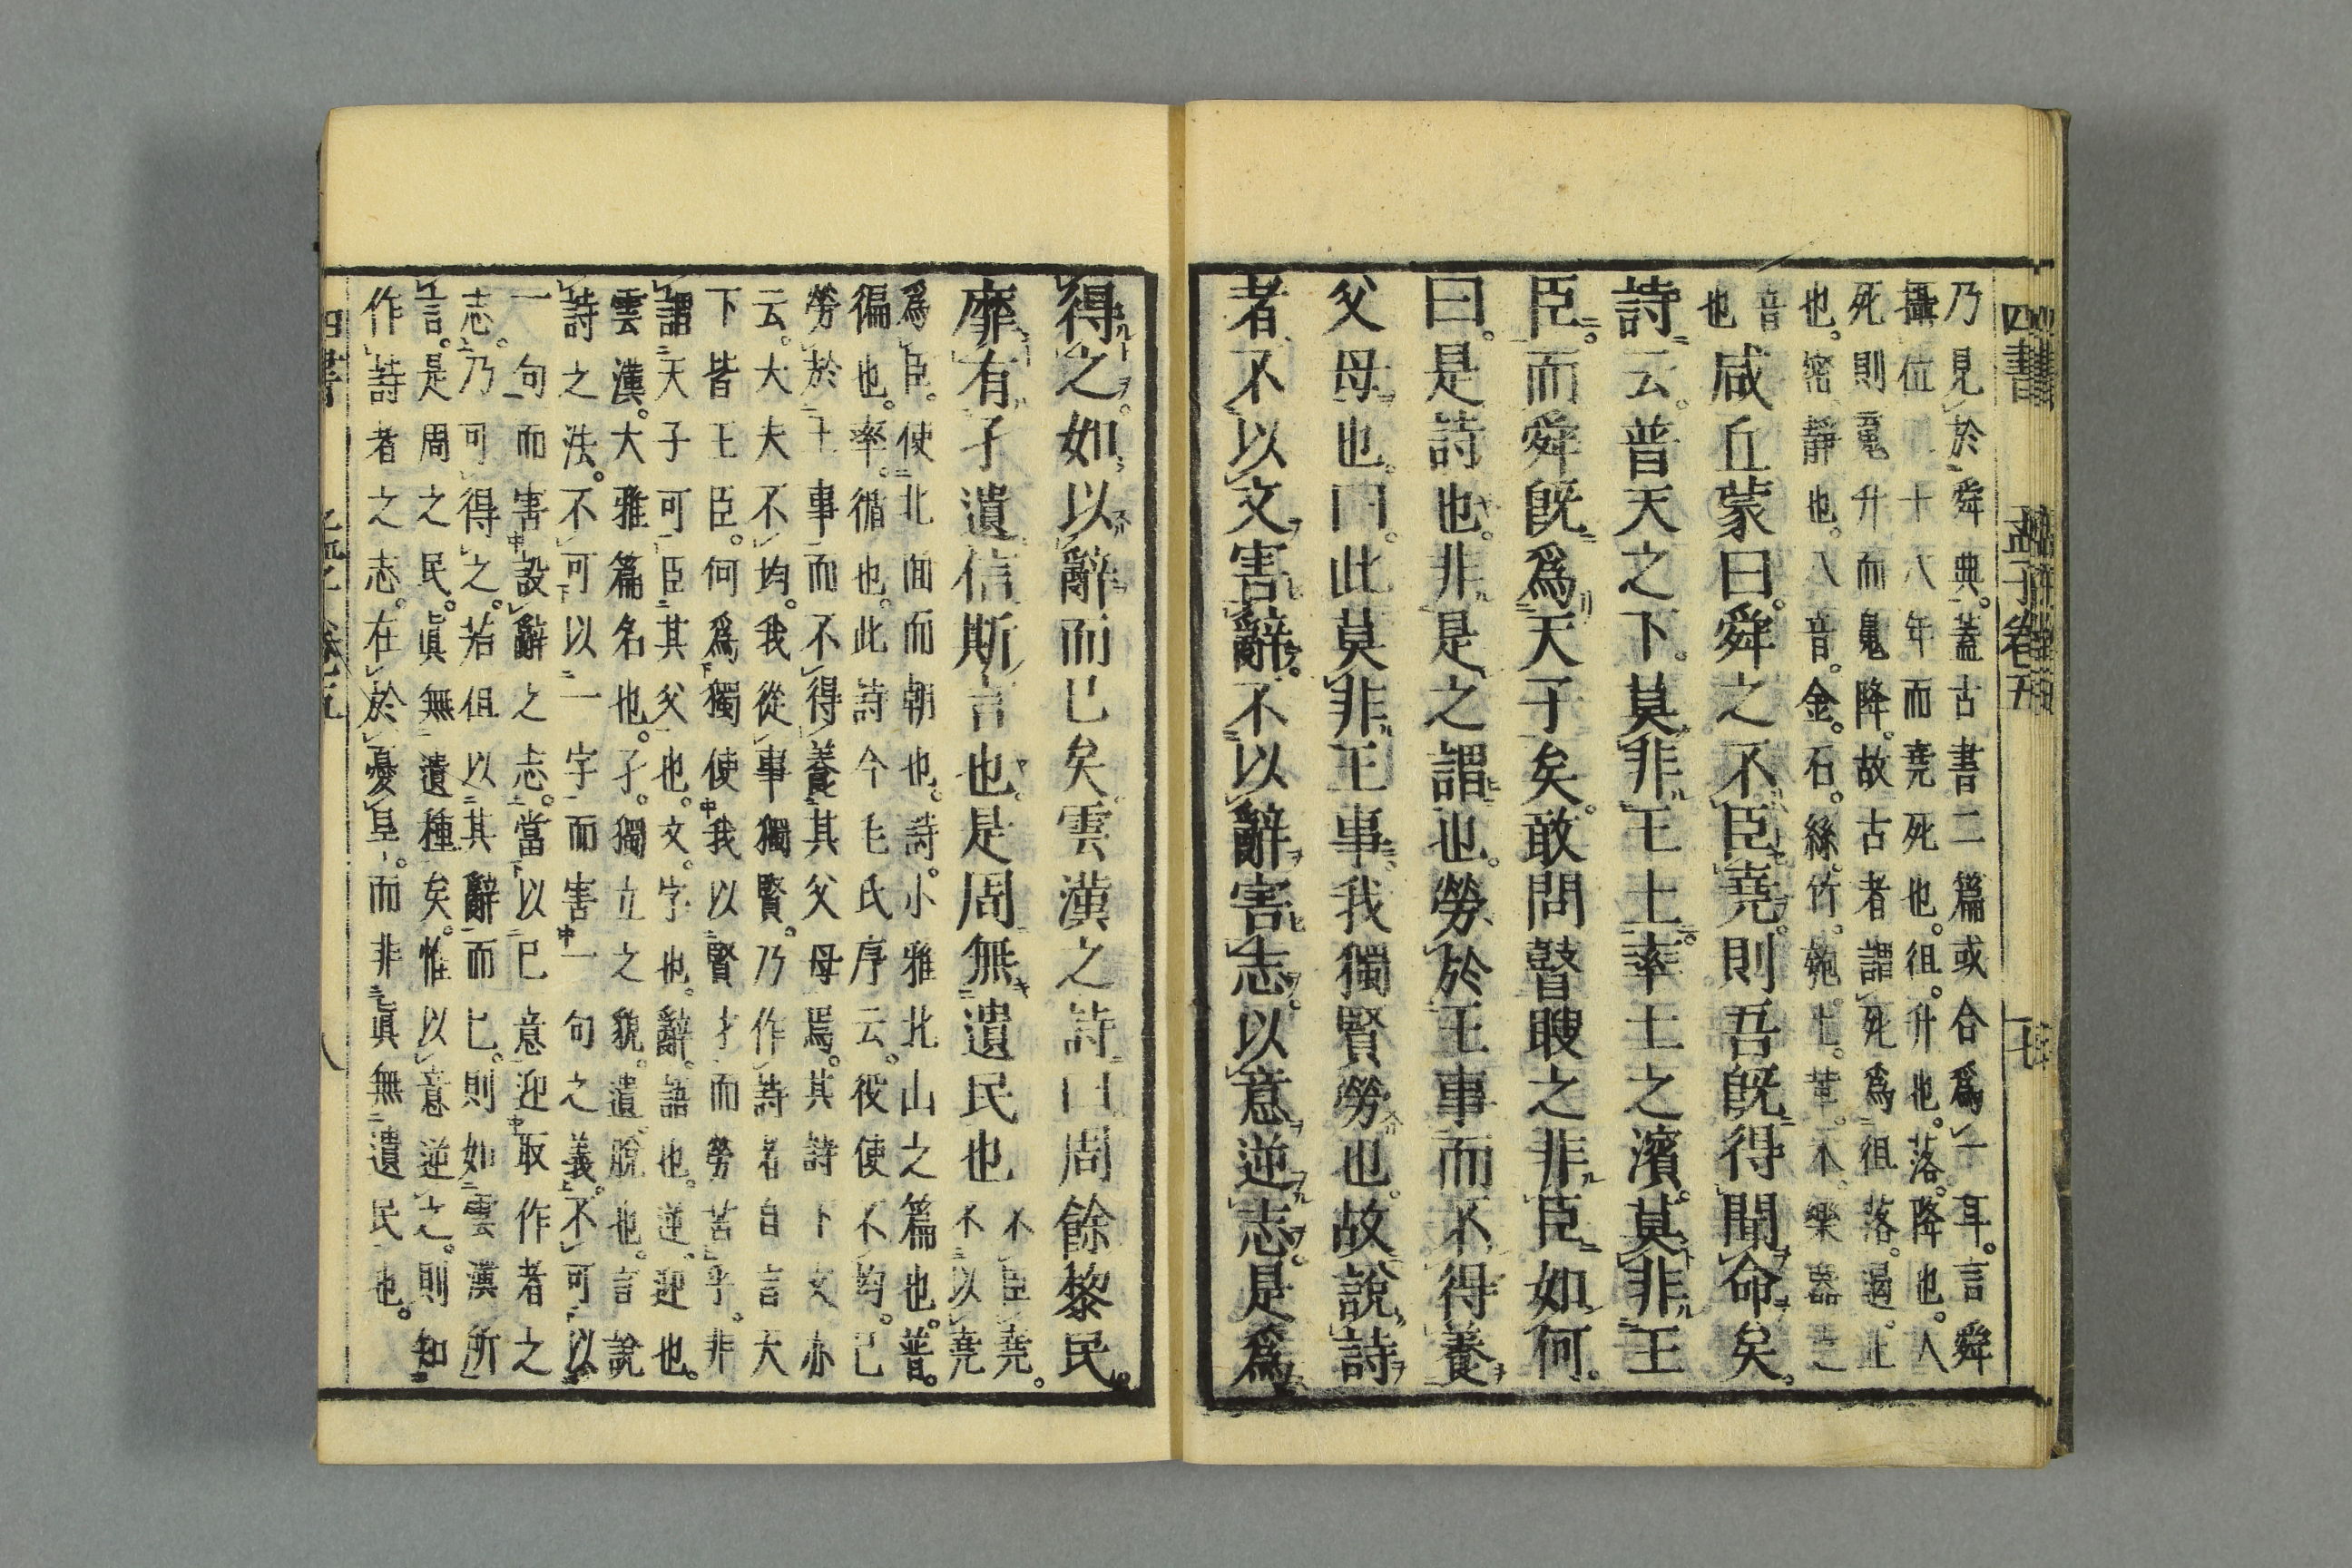 四書 孟子卷五 七
乃見於舜典。蓋古書二篇或合爲一耳。言舜
攝位二十八年而堯死也。徂。升也。落。降也。人
死則魂升而魄降。故古者謂死爲徂落。遏。止
也。密靜也。八音。金。石。絲。竹。匏。土。革。木。樂器之
音
也
咸丘蒙曰。舜之不臣堯。則吾既得聞命矣。
詩云。普天之下。莫非王土。率土之濱。莫非王
臣。而舜既爲天子矣。敢問瞽瞍之非臣如何。
曰。是詩也。非是之謂也。勞於王事而不得養
父母也。曰。此莫非王事。我獨賢勞也。故說詩
者不以文害辭。不以辭害志。以意逆志。是爲
得之。如以辭而已矣。雲漢之詩曰周餘黎民。
靡有孑遺信斯言也。是周無遺民也
不臣堯。
不以堯
爲臣。使北面而朝也。詩。小雅北山之篇也。普。
徧也。率。循也。此詩今毛氏序云。役使不均。已
勞於王事而不得養其父母焉。其詩下文亦
云。大夫不均。我從事獨賢。乃作詩者自言天
下皆王臣。何爲獨使我以賢才而勞苦乎。非
謂天子可臣其父也。文。字也。辭。語也。逆。迎也。
雲漢。大雅篇名也。孑。獨立之貌。遺。脫也。言說
詩之法。不可以一字而害一句之義。不可以
一句而害設辭之志。當以已意迎取作者之
志。乃可得之。若但以其辭而已。則如雲漢所
言。是周之民。眞無遺種矣。惟以意逆之。則知
作詩者之志。在於憂旱。而非眞無遺民也。
四書 孟子卷五 八